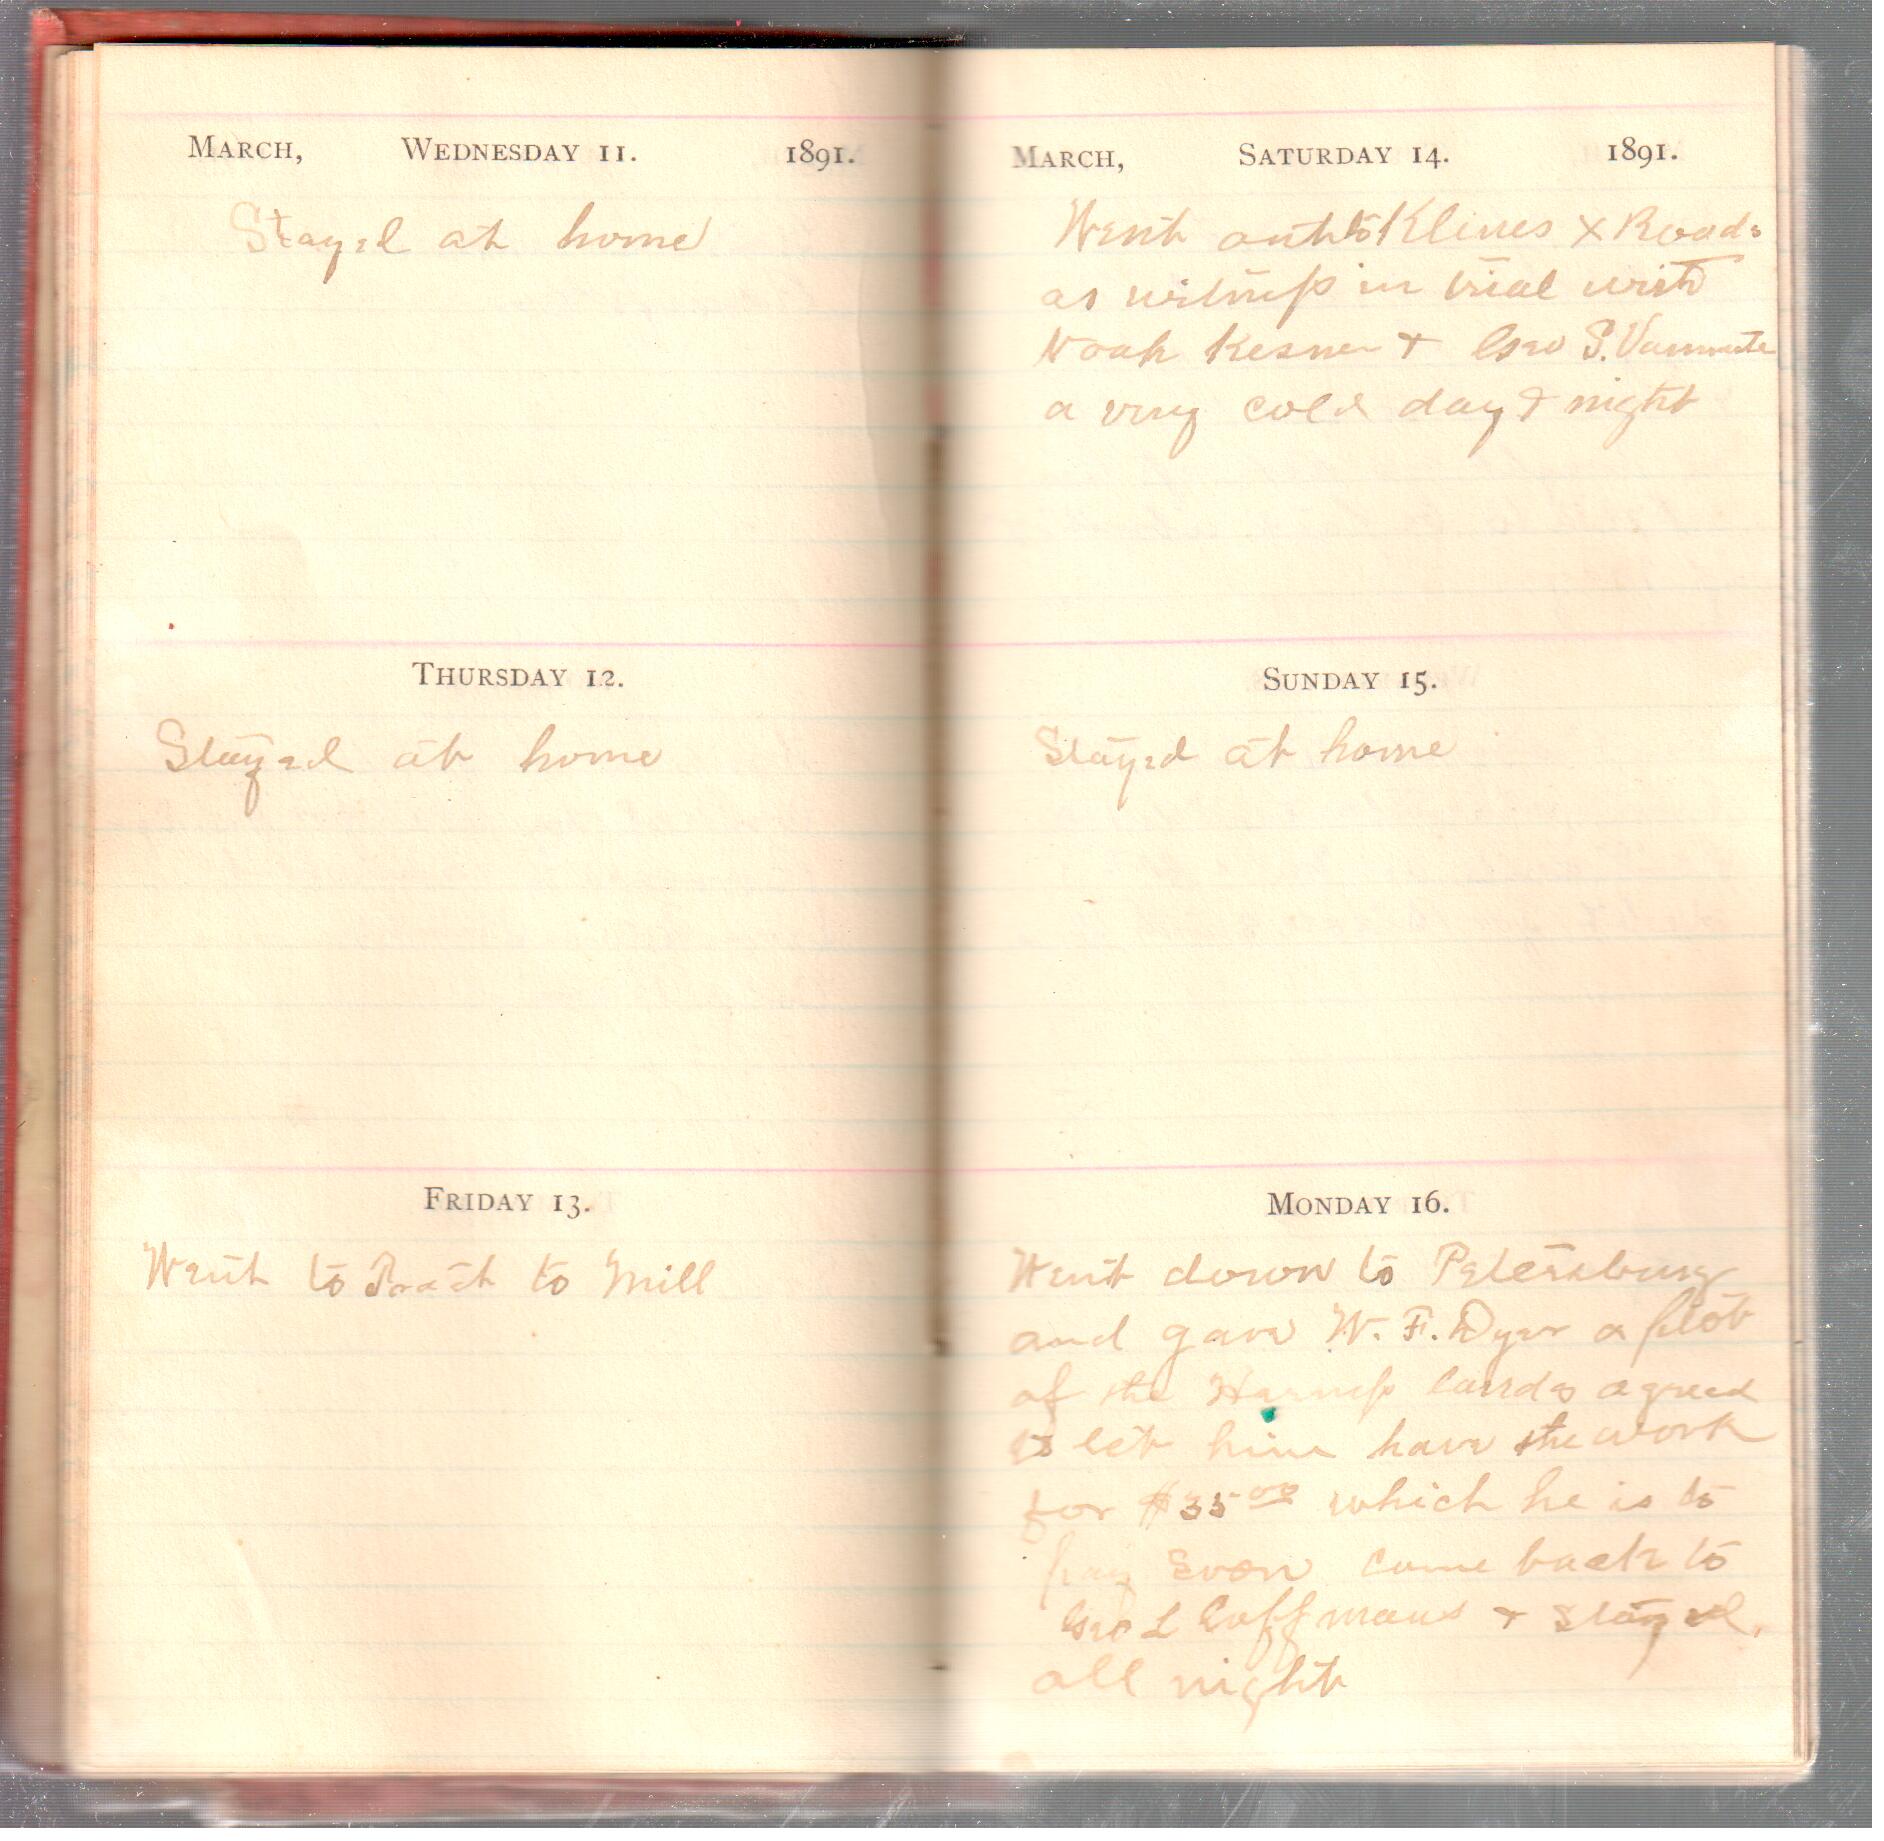 MARCH, WEDNESDAY 11. 1891.
Stayed at home
THURSDAY 12.
Stayed at home
FRIDAY 13.
Went to to Mill
MARCH, SATURDAY 14. 1891.
Went out to Klines X Roads
as witness in trial with
Noah Kesner + Geo S.
a very cold day & night
SUNDAY 15.
Stayed at home
MONDAY 16.
Went down to Petersburg
and gave W. F. Dyer a plot
of the Harness lands agreed
to let him have the work
for $35 00 which he is to
pay come back to
Geo L Coffmans + stayed
all night